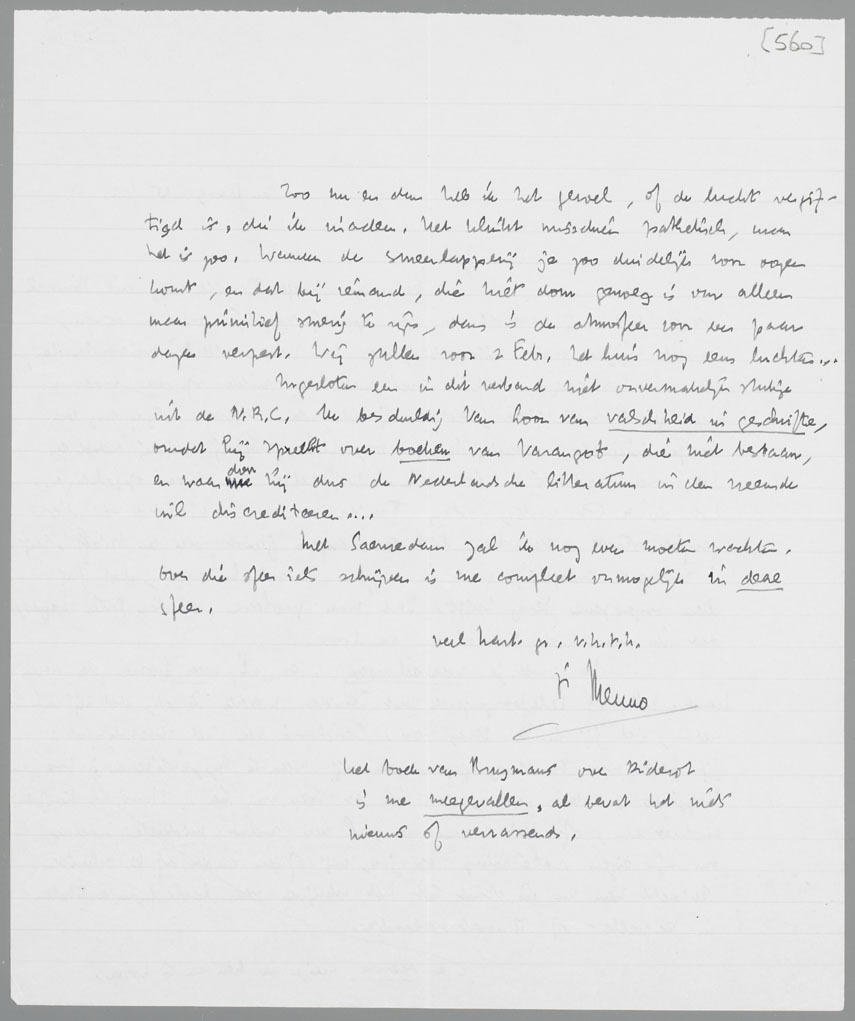 [560]
Zoo nu en dan heb ik het gevoel, of de lucht vergif-
tigd is, die ik inadem. Het klinkt misschien pathetisch, maar
het is zoo. Wanneer de smeerlapperij je zoo duidelijk voor oogen
komt, en dat bij iemand, die niet dom genoeg is om alleen
maar primitief smerig te zijn, dan is de atmosfeer voor een paar
dagen verpest. Wij zullen voor 2 Febr. het huis nog eens luchten...
Ingesloten een in dit verband niet onvermakelijk stukje
uit de N.R.C. Un beschuldig Van Loon van valschheid in geschrifte,
omdat hij spreekt over boeken van Varangot, die niet bestaan,
en waardoor hij dus de Nederlandsche litteratuur in den vreemde
wil discrediteeren....
Met Saenredam zal ik nog even moeten wachten.
Over die sfeer iets schrijven is me compleet onmogelijk in deze
sfeer.
veel hart. gr. v.h.t.h.
je Menno
Het boek van Brugmans over Diderot
is me meegevallen, al bevat het niets
nieuws of verrassends.